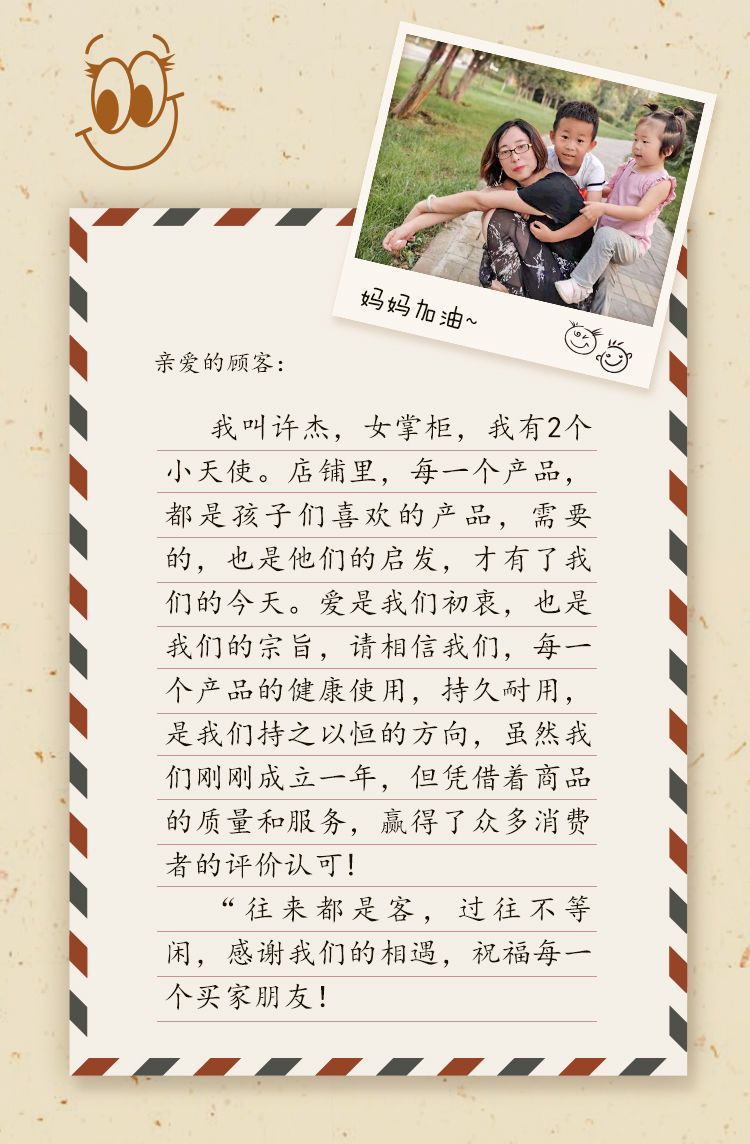 妈妈加油~
亲爱的顾客：
我叫许杰，女掌柜，我有2个
小天使。店铺里，每一个产品，
都是孩子们喜欢的产品，需要
的，也是他们的启发，才有了我
们的今天。爱是我们初衷，也是
我们的宗旨，请相信我们，每一
个产品的健康使用，持久耐用，
是我们持之以恒的方向，虽然我
们刚刚成立一年，但凭借着商品
的质量和服务，赢得了众多消费
者的评价认可！
“往来都是客，过往不等
闲，感谢我们的相遇，祝福每一
个买家朋友！